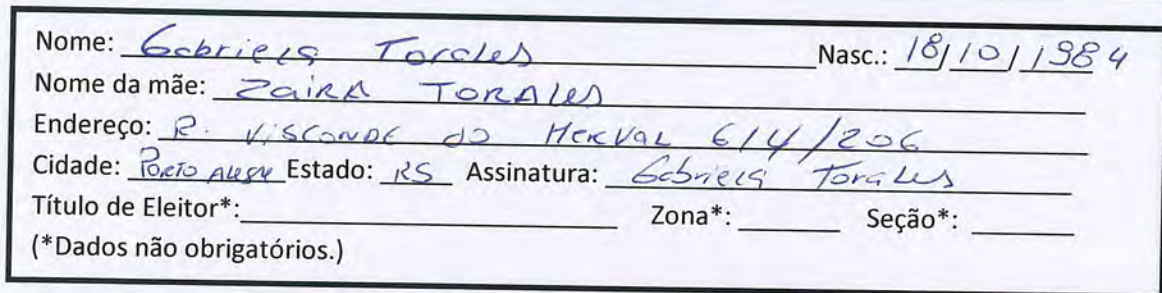 Nome: Gabriela Torales Nasc.: 18/10/1984
Nome da mãe: Zaira TORALES
Endereço: R. VISCONDE DO HERVAL 614/206
Cidade: PORTO ALEGRE Estado: RS Assinatura: Gabriela Torales
Título de Eleitor*: Zona*: Seção*:
(*Dados não obrigatórios.)